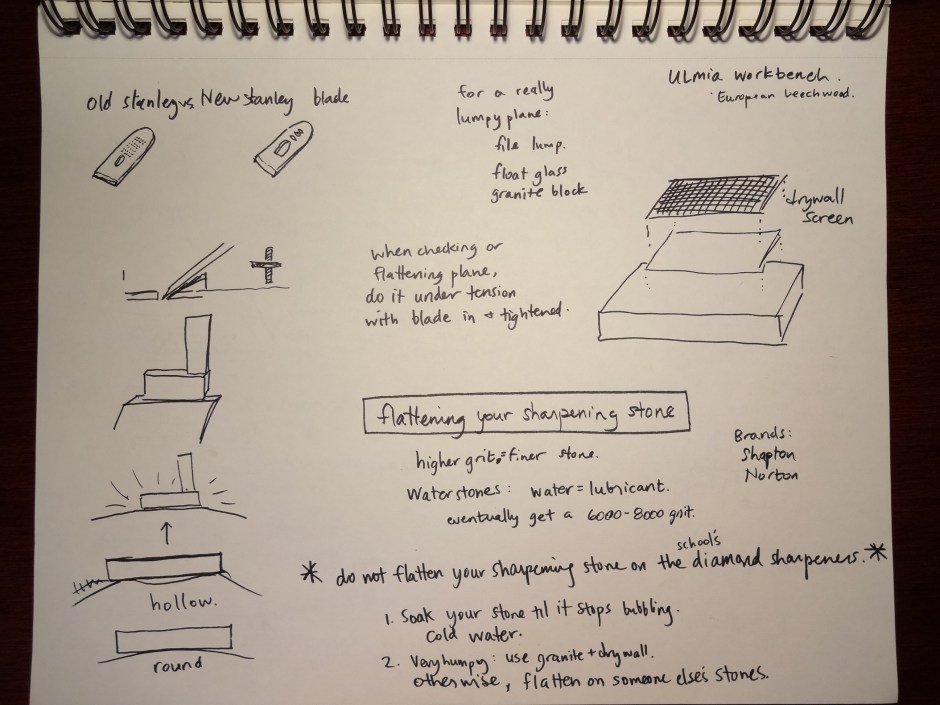 old stanley vs. New stanley blade
for a really
lumpy plane:
file lump.
float glass
granite block
ULmia workbench.
European beechwood.
drywall
screen
when checking or
flattening plane,
do it under tension
with blade in + tightened.
flattening your sharpening stone
higher grit, = finer stone.
Waterstones: water = lubricant.
eventually get a 6000-8000 grit.
Brands:
Shapton
Norton
hollow.
round
* do not flatten your sharpening stone on the school's diamond sharpeners. *
1. Soak your stone til it stops bubbling.
cold water.
2. Very humpy: use granite + drywall.
otherwise, flatten on someone else's stones.